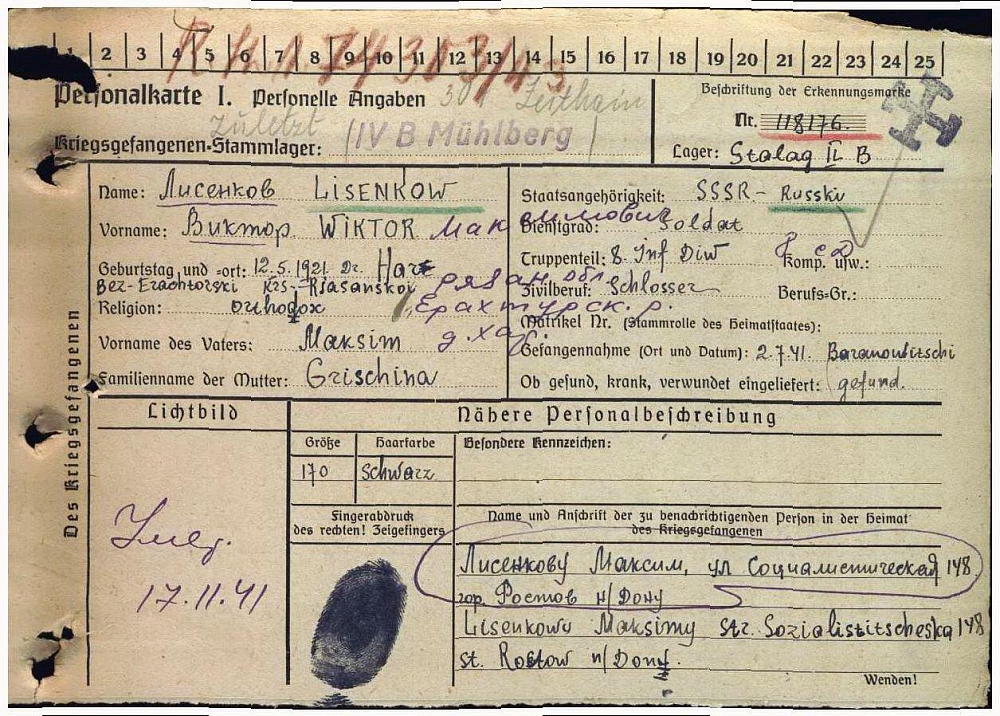 1 2 3 4 5 6 7 8 9 10 11 12 13 14 15 16 17 18 19 20 21 22 23 24 25
Personalkarte I. Personelle Angaben
304 Zeithain
Beschriftung der Erkennungsmarke
zuletzt
Nr. 118176.
Kriegsgefangenen-Stammlager: (IV B Mühlberg)
Lager: Stalag II B
Des Kriegsgefangenen
Name: Лисенков LISENKOW
Staatsangehörigkeit: SSSR - Russkiv
Vorname: Виктор WIKTOR Максимович
Dienstgrad: Soldat
Truppenteil: 8. Inf Diw Komp. usw.:
Geburtstag und -ort: 12.5.1921 Dr.
Bez-Erachtorski Krs-Rjasanskoi рязан обл
Zivilberuf: Schlosser Berufs-Gr.:
Religion: orthodox
Ерахтурск. р.
Matrikel Nr. (Stammrolle des Heimatstaates):
Vorname des Vaters: Maksim
Gefangennahme (Ort und Datum): 2.7.41. Baranowitschi
Familienname der Mutter: Grischina
Ob gesund, krank, verwundet eingeliefert: gesund.
Lichtbild
Nähere Personalbeschreibung
Größe Haarfarbe Besondere Kennzeichen:
170 Schwarz
Fingerabdruck
des rechten! Zeigefingers
Name und Anschrift der zu benachrichtigenden Person in der Heimat
des Kriegsgefangenen
17.11.41
Лисенкову Максим, ул Социалистическая 148
гор. Ростов н/Дону
Lisenkowu Maksimu str. Sozialistitscheska 148
st. Rostow n/Donu.
Wenden!